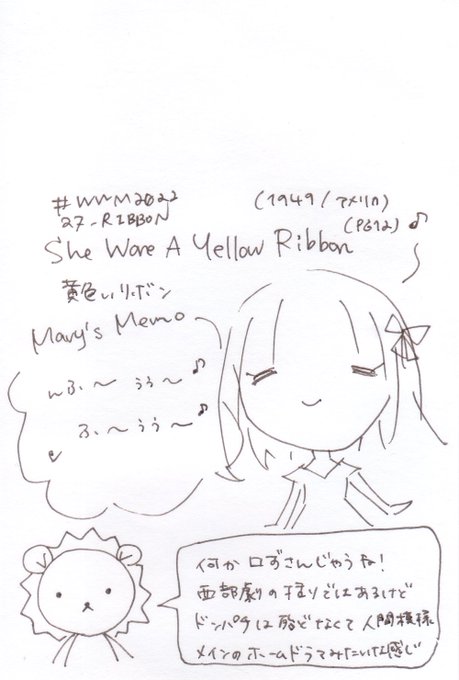 #WWM2022
27-RIBBON
(1949/アメリカ)
(PG12)
She Wore A Yellow Ribbon
黄色いリボン
Mary's Memo
んふ〜 うぅ〜♪
ふ〜うぅ〜♪
何か口ずさんじゃうね!
西部劇の括りではあるけど
ドンパチは殆どなくて人間模様
メインのホームドラマみたいな感じ